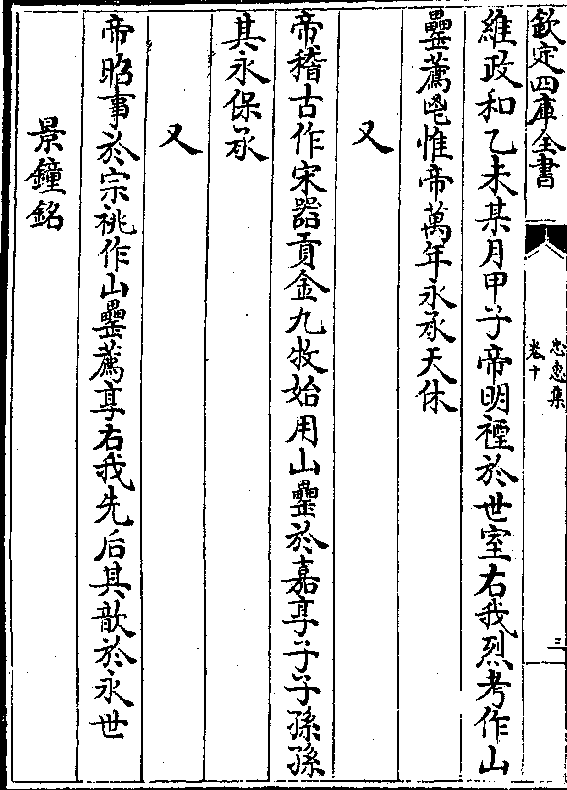 欽定四庫全書
忠惠集
卷十
三
維政和乙未某月甲子帝明禋於世室右我烈考作山
罍薦鬯惟帝萬年永承天休
又
帝稽古作宋器貢金九牧始用山罍於嘉享子子孫孫
其永保承
又
帝昭事於宗祧作山罍薦享右我先后其歆於永世
景鐘銘